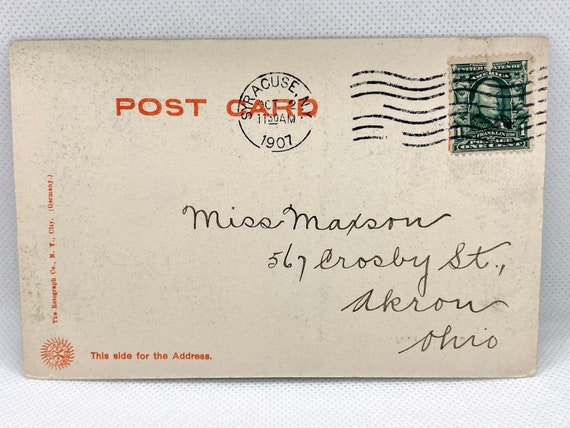 POST CARD
SYRACUSE, N.Y.
OCT 2
11 30 AM
1907
UNITED STATES OF
AMERICA
FRANKLIN
POSTAGE
ONE CENT
Miss Maxson
567 Crosby St.,
Akron
Ohio
The Rotograph Co., N. Y., City. (Germany.)
This side for the Address.